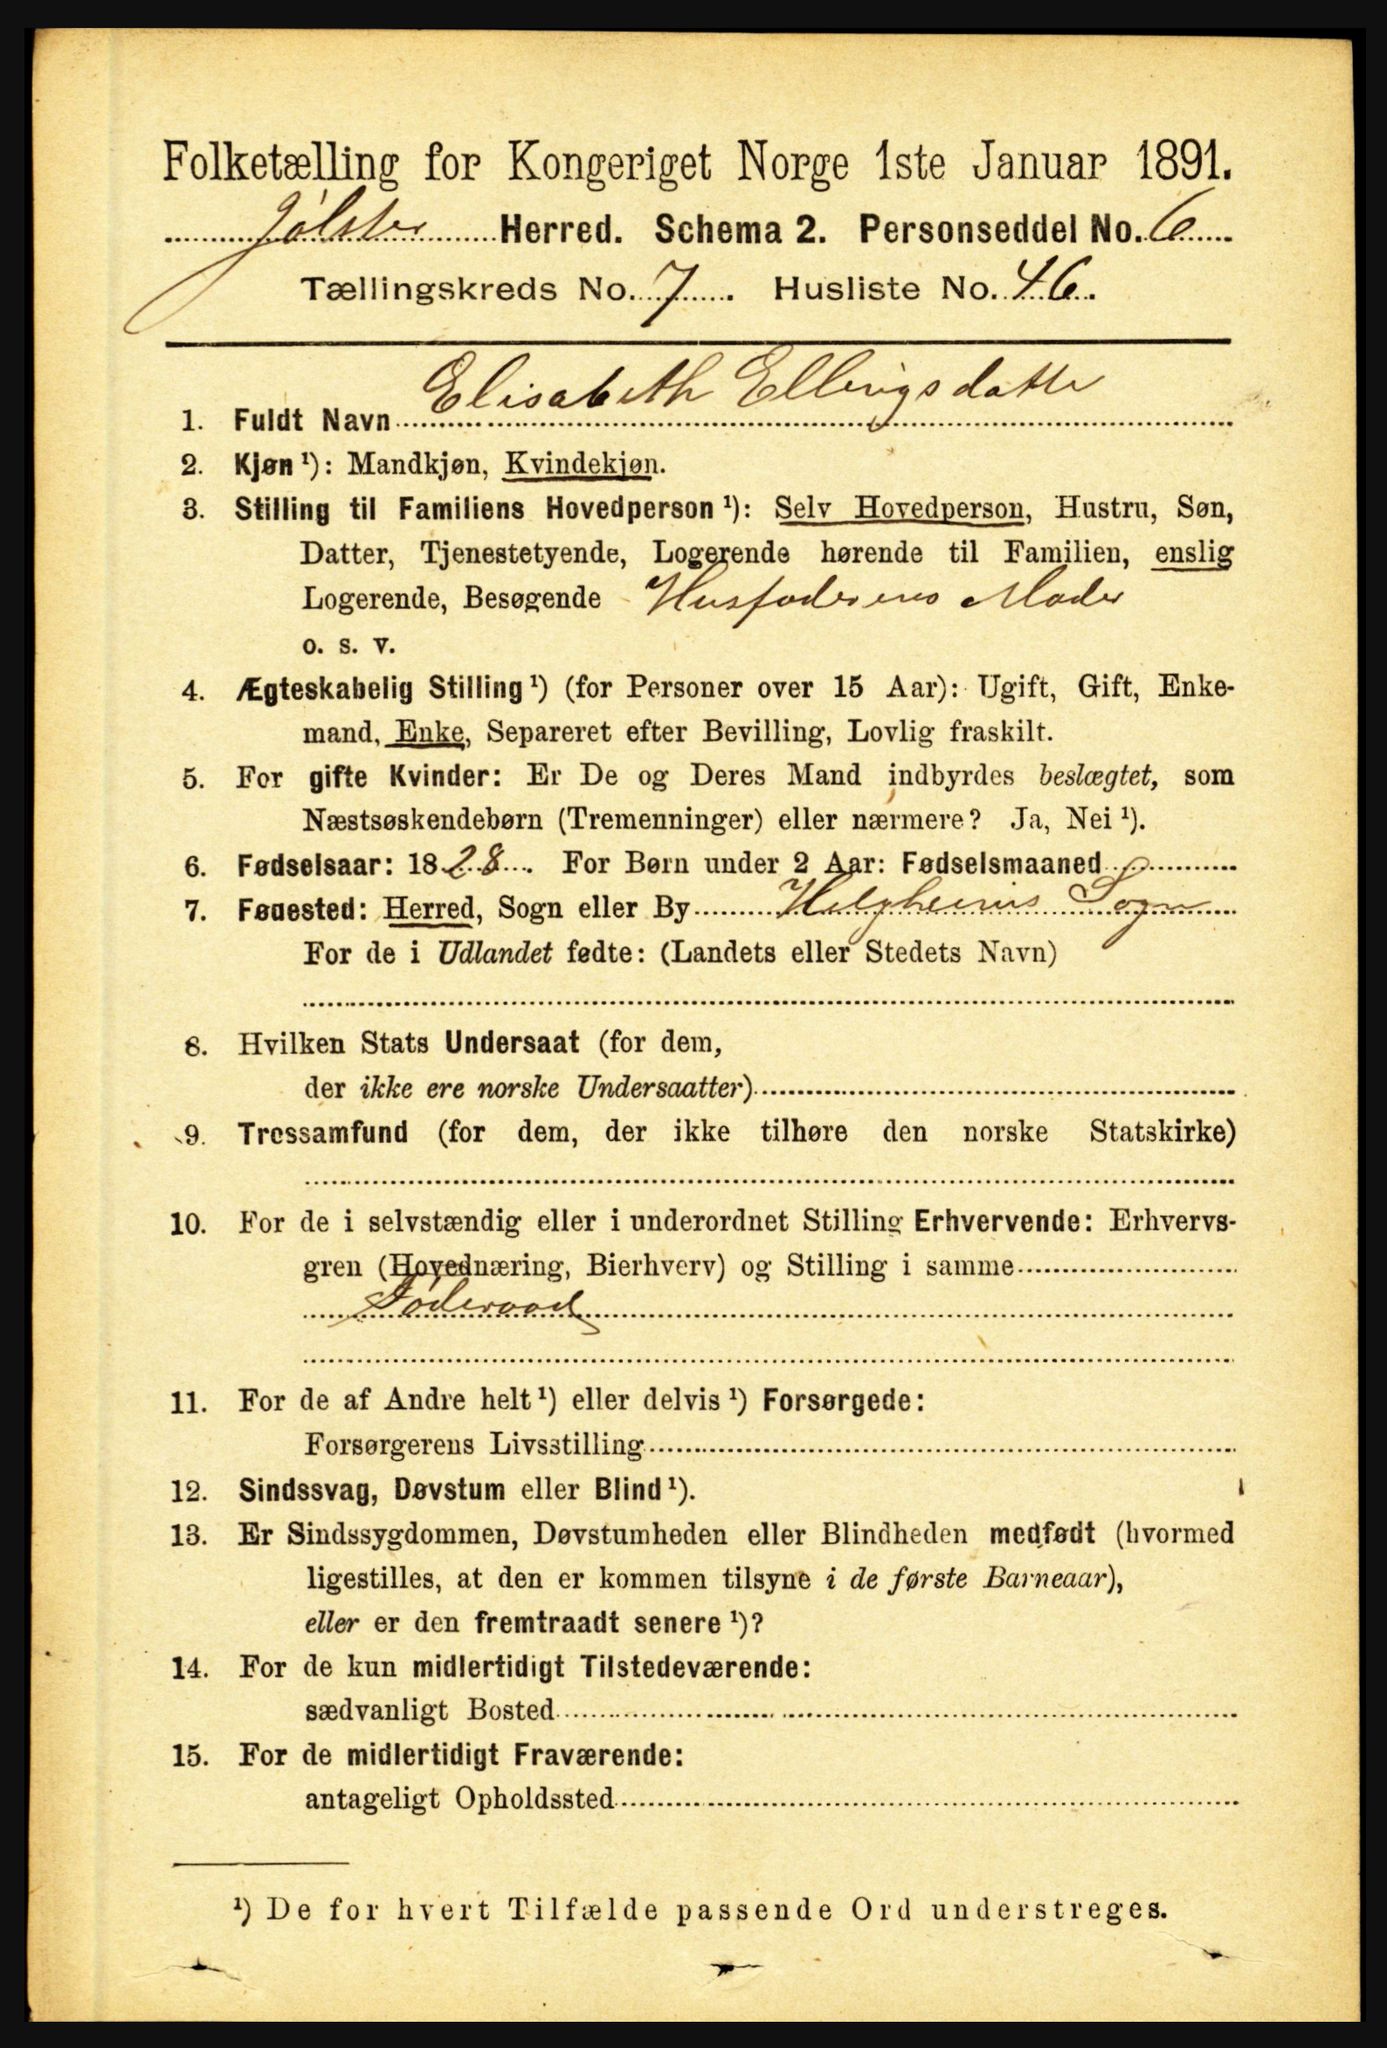 Folketælling for Kongeriget Norge 1ste Januar 1891.
Jølster Herred. Schema 2. Personseddel No. 6
Tællingskreds No. 7. Husliste No. 46.
1. Fuldt Navn Elisabeth Ellingsdatte
2. Kjøn ¹): Mandkjøn, Kvindekjøn.
3. Stilling til Familiens Hovedperson ¹): Selv Hovedperson, Hustru, Søn,
Datter, Tjenestetyende, Logerende hørende til Familien, enslig
Logerende, Besøgende Husfaderens Moder
o. s. v.
4. Ægteskabelig Stilling ¹) (for Personer over 15 Aar): Ugift, Gift, Enke-
mand, Enke, Separeret efter Bevilling, Lovlig fraskilt.
5. For gifte Kvinder: Er De og Deres Mand indbyrdes beslægtet, som
Næstsøskendebørn (Tremenninger) eller nærmere? Ja, Nei ¹).
6. Fødselsaar: 1828. For Børn under 2 Aar: Fødselsmaaned
7. Fødested: Herred, Sogn eller By Helgheims Sogn
For de i Udlandet fødte: (Landets eller Stedets Navn)
8. Hvilken Stats Undersaat (for dem,
der ikke ere norske Undersaatter)
9. Trossamfund (for dem, der ikke tilhøre den norske Statskirke)
10. For de i selvstændig eller i underordnet Stilling Erhvervende: Erhvervs-
gren (Hovednæring, Bierhverv) og Stilling i samme
Føderaad
11. For de af Andre helt ¹) eller delvis ¹) Forsørgede:
Forsørgerens Livsstilling
12. Sindssvag, Døvstum eller Blind ¹).
13. Er Sindssygdommen, Døvstumheden eller Blindheden medfødt (hvormed
ligestilles, at den er kommen tilsyne i de første Barneaar),
eller er den fremtraadt senere ¹)?
14. For de kun midlertidigt Tilstedeværende:
sædvanligt Bosted
15. For de midlertidigt Fraværende:
antageligt Opholdssted
¹) De for hvert Tilfælde passende Ord understreges.